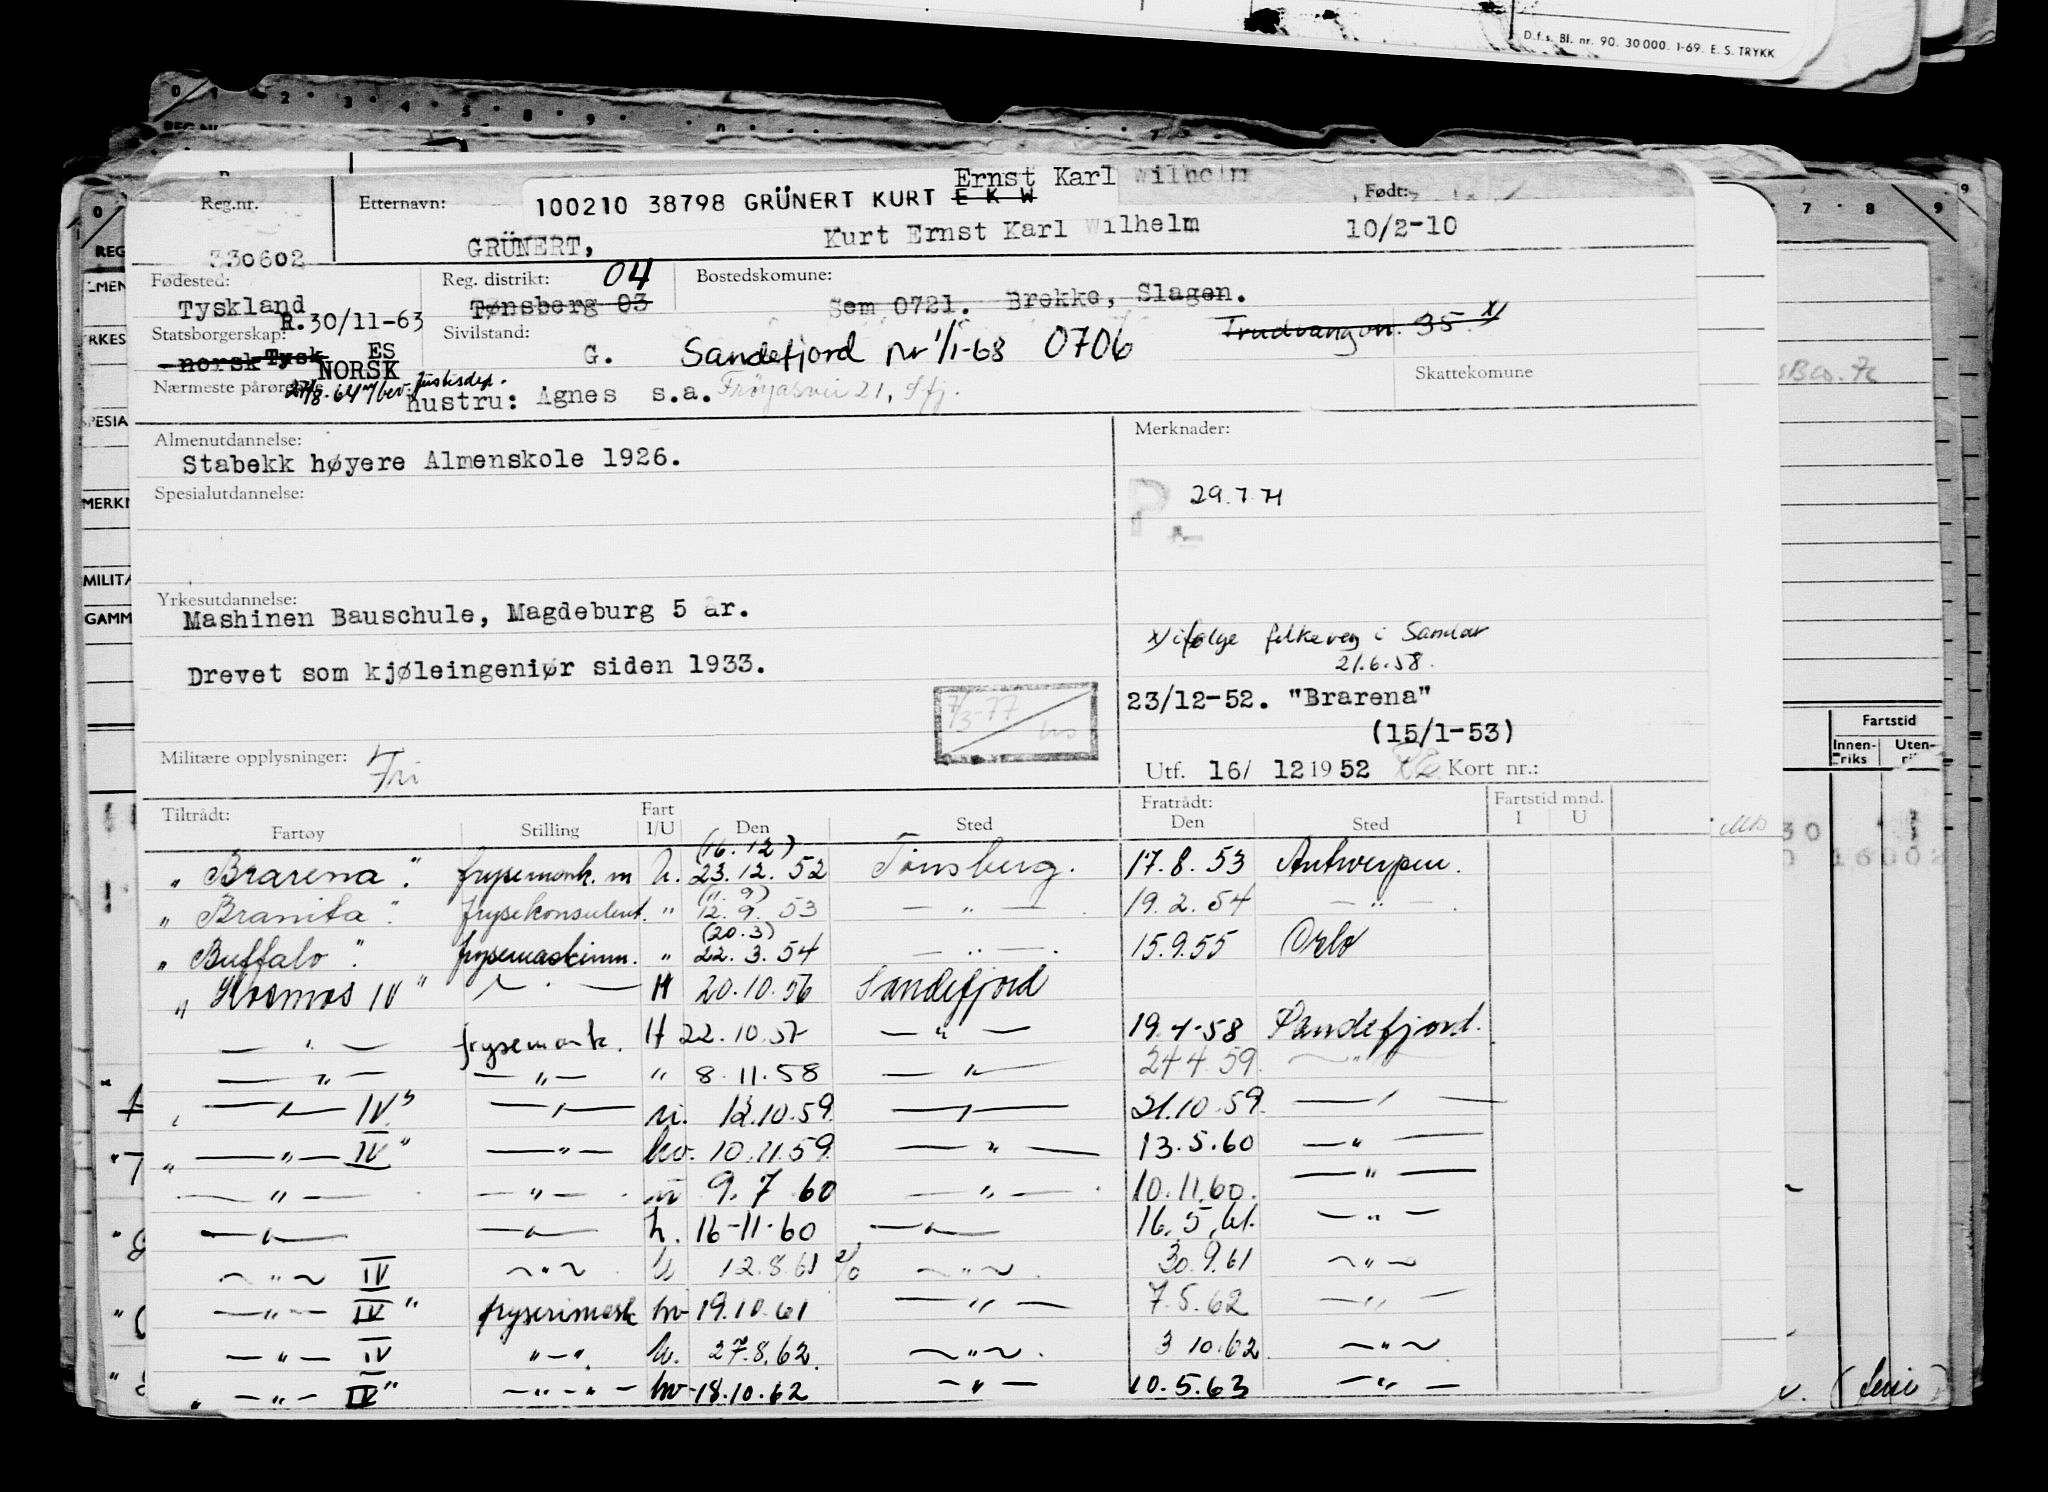 D.f.s. Bl. nr. 90. 30 000. 1-69. E. S. TRYKK
Reg.nr.
Etternavn:
100210 38798 GRÜNERT KURT E K W
Ernst Karl Wilhelm
Født:
330602
GRÜNERT,
Kurt Ernst Karl Wilhelm
10/2-10
Fødested:
Reg. distrikt: 04
Bostedskomune:
Tyskland
Tønsberg 03
Sem 0721. Brekke, Slagen.
Statsborgerskap:
R.30/11-63
Sivilstand:
Trudvangvn. 35 x)
norsk Tysk ES
NORSK
G.
Sandefjord nr 1/1-68 0706
Nærmeste pårørende
27/8-64 m/bev. Justisdep.
hustru: Agnes s.a. Frøyasvei 21, Sfj.
Skattekomune
Almenutdannelse:
Stabekk høyere Almenskole 1926.
Merknader:
Spesialutdannelse:
P. 29.7.71
Yrkesutdannelse:
Mashinen Bauschule, Magdeburg 5 år.
Drevet som kjøleingeniør siden 1933.
x) ifølge folkereg i Sandar
21.6.58.
7/3-77
23/12-52. "Brarena"
(15/1-53)
Militære opplysninger: Fri
Utf. 16/ 12 1952 Kort nr.:
Tiltrådt:
Fartøy Stilling Fart I/U Den Sted
Fratrådt:
Den Sted
Fartstid mnd.
I U
" Brarena " frysemask. m h. (16.12) 23.12.52 Tønsberg. 17.8.53 Antwerpen.
" Branita " frysekonsulent. " (11.9) 12.9.53 — " — 19.2.54 — " —
" Buffalo " frysemaskinm. " (20.3) 22.3.54 — " — 15.9.55 Oslo
" Kosmos IV " — " — H 20.10.56 Sandefjord
— " — frysemask. H 22.10.57 — " — 19.4-58 Sandefjord.
— " — — " — " 8.11.58 — " — 24.4.59. — " —
" — " — IV " — " — 12.10.59. — " — 21.10.59. — " —
" — " — IV " — " — hv. 10.11.59. — " — 13.5.60 — " —
— " — — " — 9.7.60 — " — 10.11.60. — " —
— " — — " — h. 16-11-60 — " — 16.5.61. — " —
— " — IV — " — 12.8.61 — " — 30.9.61 — " —
" — " — IV " hv 19.10.61 — " — 7.5.62 — " —
— " — IV " — " 27.8.62. — " — 3.10.62. — " —
" — " — IV " — " — " — hv 18.10.62 — " — 10.5.63 — " —
Fartstid
Innen-riks Uten-
REG
MERKN
MILITÆ
GAMM